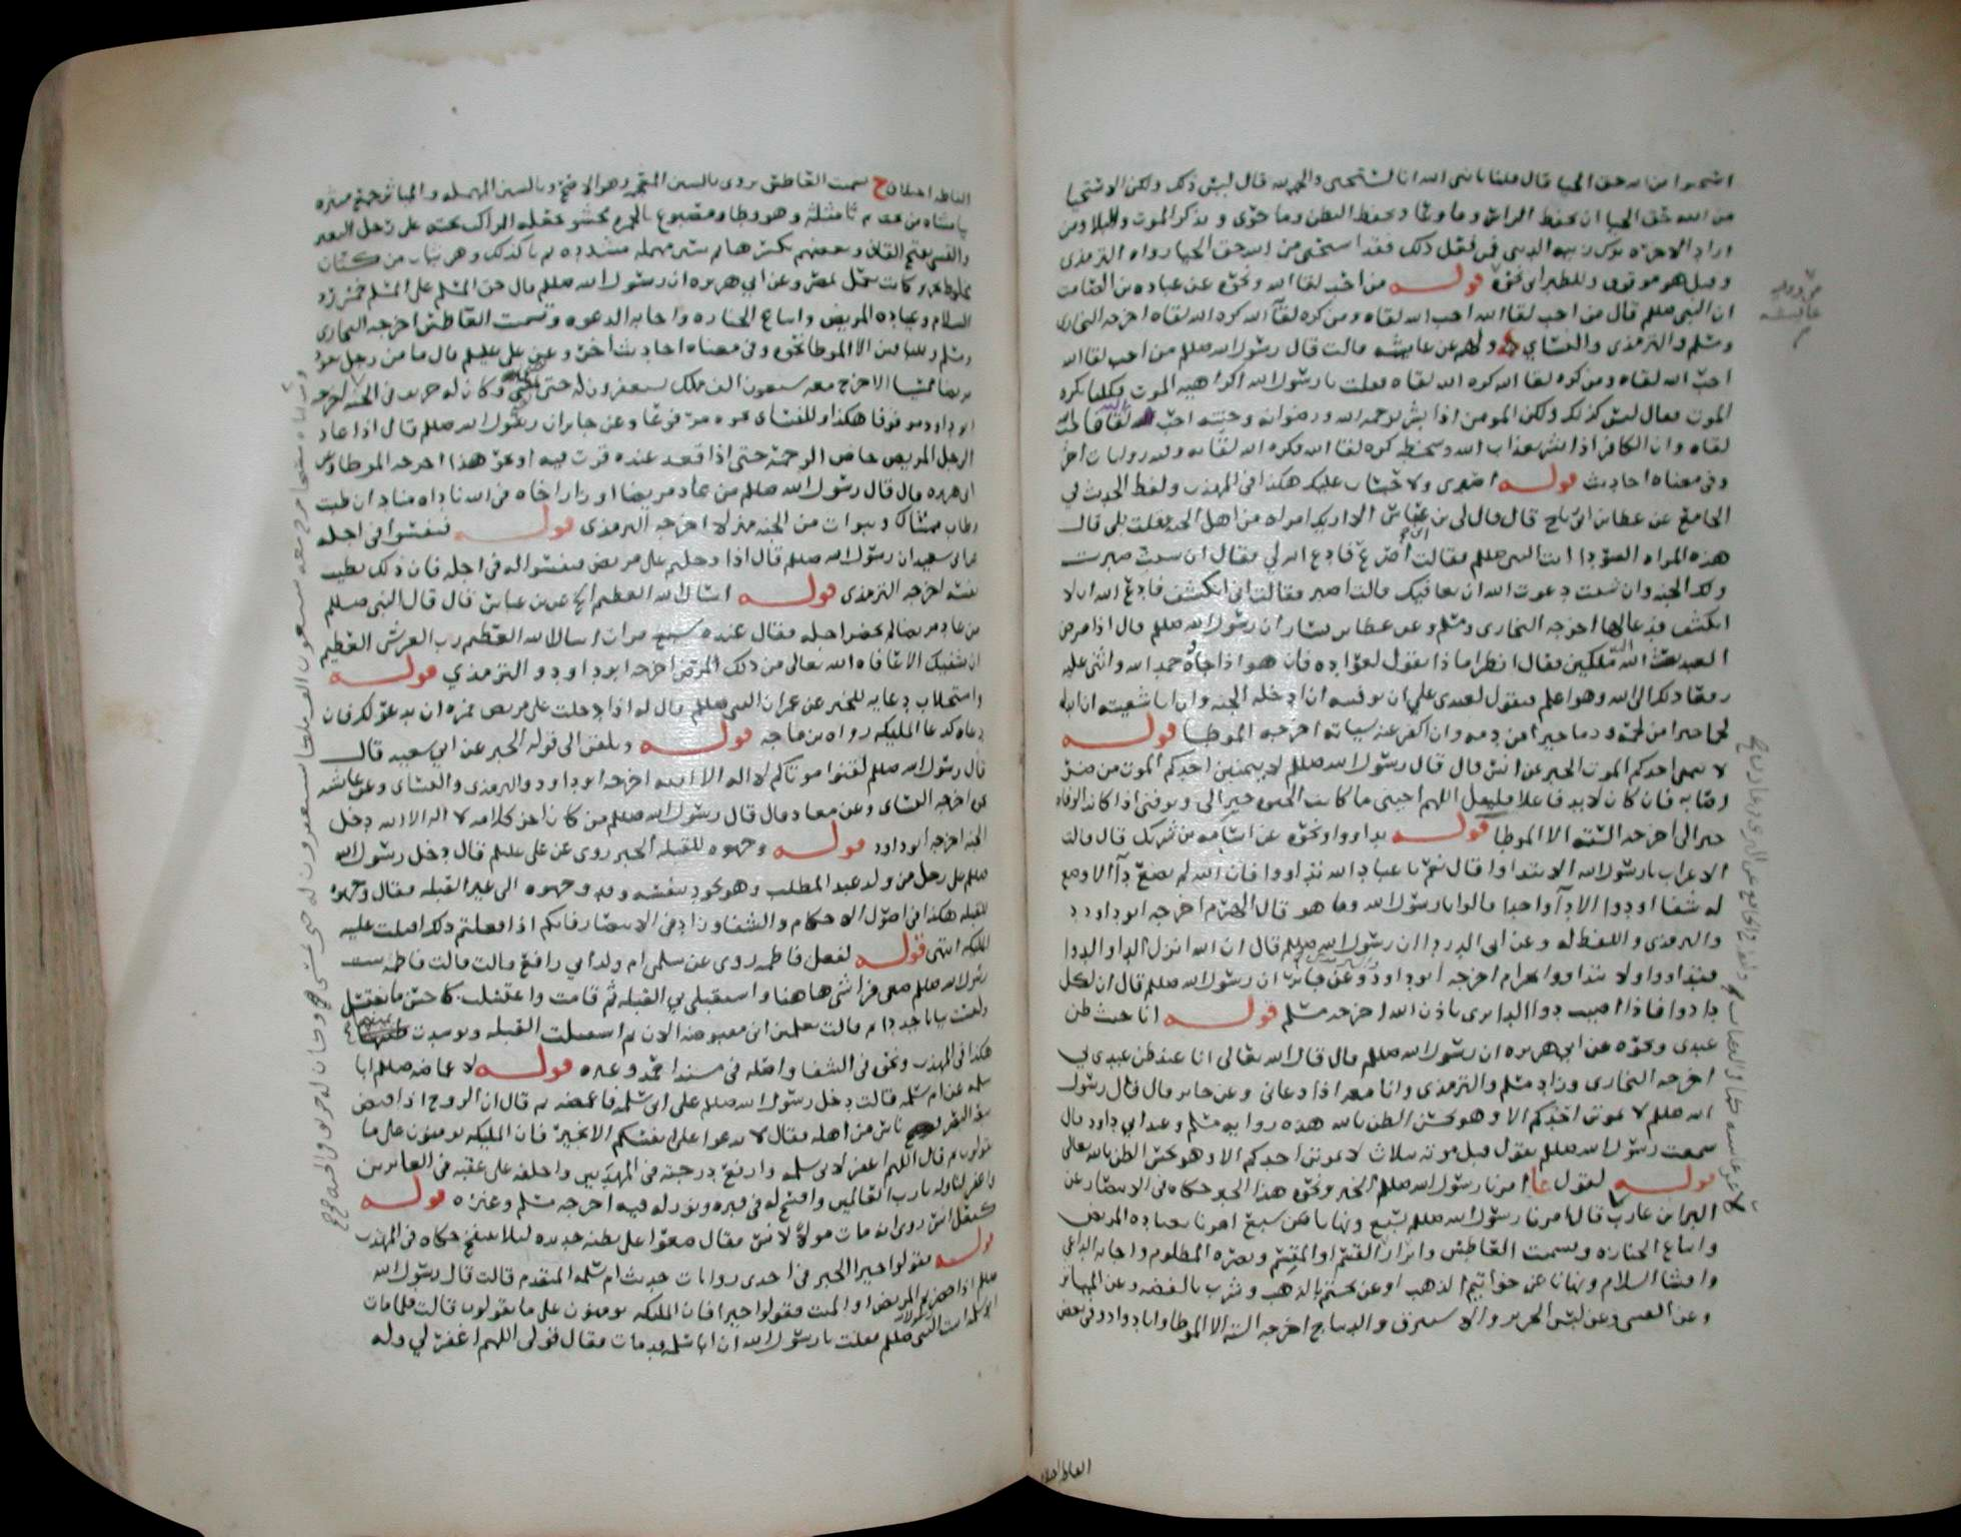 استحيوا من الله حق الحيا قال قلنا يا نبي الله انا لنستحيي والحمد لله قال ليس ذلك ولكن الاستحيا
من الله حق الحيا ان يحفظ الراس وما وعا ويحفظ البطن وما حوى ويذكر الموت والبلا ومن
اراد الاخره ترك زينه الدنيا فمن فعل ذلك فقد استحيى من الله حق الحيا رواه الترمذي
وقيل هو موقوف وللطبراني نحوه قوله من احب لقا الله ونحوه عن عباده بن الصامت
ان النبي صلعم قال من احب لقا الله احب الله لقاه ومن كره لقا الله كره الله لقاه اخرجه البخاري
ومسلم والترمذي والنساي ولهم عن عايشه قالت قال رسول الله صلعم من احب لقا الله
احب الله لقاه ومن كره لقا الله كره الله لقاه فقلت يا رسول الله اكراهيه الموت فكلنا يكره
الموت فقال ليس كذلك ولكن المومن اذا بشر برحمه الله ورضوانه وجنته احب لقا الله فاحب
لقاه وان الكافر اذا بشر بعذاب الله وسخطه كره لقا الله فكره الله لقاه وفيه روايات اخر
وفي معناه احاديث قوله اصبري ولا حساب عليك هكذا في المهذب ولفظ الحديث في
الجامع عن عطا بن ابي رباح قال قال لي بن عباس الا اريك امراه من اهل الجنه فقلت بلى قال
هذه المراه السودا اتت النبي صلعم فقالت اني اصرع فادع الله لي فقال ان شيت صبرت
ولك الجنه وان شيت دعوت الله ان يعافيك قالت اصبر فقالت اني اتكشف فادع الله ان لا
اتكشف فدعا لها اخرجه البخاري ومسلم وعن عطا بن يسار ان رسول الله صلعم قال اذا مرض
العبد بعث الله اليه ملكين فقال انظرا ماذا يقول لعواده فان هو اذا جاوه حمد الله واثنى عليه
رفعا ذلك الى الله وهو اعلم فيقول لعبدي علي ان توفيته ان ادخله الجنه وان انا شفيته ان ابدله
لحما خيرا من لحمه ودما خيرا من دمه وان اكفر عنه سياته اخرجه الموطا قوله
لا يتمنى احدكم الموت الخبر عن انس قال قال رسول الله صلعم لا يتمنين احدكم الموت من ضر
اصابه فان كان لا بد فاعلا فليقل اللهم احيني ما كانت الحيوه خيرا لي وتوفني اذا كانت الوفاه
خيرا لي اخرجه السته الا الموطا قوله تداووا ونحوه عن اسامه بن شريك قال قالت
الاعراب يا رسول الله الا نتداوا قال نعم يا عباد الله تداووا فان الله لم يضع دآ الا وضع
له شفا او دوا الا دآ واحدا قالوا يا رسول الله وما هو قال الهرم اخرجه ابو داود
والترمذي واللفظ له وعن ابي الدردا ان رسول الله صلعم قال ان الله انزل الدا والدوا
فتداووا ولا تتداووا بحرام اخرجه ابو داود وعن جابر ان رسول الله صلعم قال ان لكل
دا دوا فاذا اصيب دوا الدا برى باذن الله اخرجه مسلم قوله انا عند ظن
عبدي ونحوه عن ابي هريره ان رسول الله صلعم قال قال الله تعالى انا عند ظن عبدي بي
اخرجه البخاري وزاد مسلم والترمذي وانا معه اذا دعاني وعن جابر قال قال رسول
الله صلعم لا يموتن احدكم الا وهو يحسن الظن بالله هذه روايه مسلم وعند ابي داود قال
سمعت رسول الله صلعم يقول قبل موته بثلاث لا يموتن احدكم الا وهو يحسن الظن بالله تعالى
قوله لقول امرنا رسول الله صلعم الخبر ونحوه هذا الخبر حكاه في الانتصار عن
البرا بن عازب قال امرنا رسول الله صلعم بسبع ونهانا عن سبع امرنا بعياده المريض
واتباع الجنازه وتسميت العاطس وابرار القسم او المقسم ونصره المظلوم واجابه الداعي
وافشا السلام ونهانا عن خواتيم الذهب او عن تختم بالذهب وشرب بالفضه وعن المياثر
وعن القسي وعن لبس الحرير والاستبرق والديباج اخرجه السته الا الموطا وابا داود وفي بعض
الفاظه اختلاف
الفاظه اختلاف ح تسميت العاطس يروى بالسين المعجمه وهو الافصح وبالسين المهمله والمياثر جمع ميثره
والقسي بفتح القاف وبعضهم يكسرها ثم سين مهمله مشدده ثم يا كذلك وهي ثياب من كتان
مخلوط بحرير كانت تحمل من مصر وعن ابي هريره ان رسول الله صلعم قال حق المسلم على المسلم خمس رد
السلام وعياده المريض واتباع الجنازه واجابه الدعوه وتسميت العاطس اخرجه البخاري
ومسلم وللباقين الا الموطا نحوه وفي معناه احاديث اخر وعن علي عليلم قال ما من رجل يعود
مريضا ممسيا الا خرج معه سبعون الف ملك يستغفرون له حتى يصبح وكان له خريف في الجنه اخرجه
ابو داود موقوفا هكذا وللنساي نحوه مرفوعا وعن جابر ان رسول الله صلعم قال اذا عاد
الرجل المريض خاض الرحمه حتى اذا قعد عنده قرت فيه او نحو هذا اخرجه الموطا وعن
ابي هريره قال قال رسول الله صلعم من عاد مريضا او زار اخاه في الله ناداه مناد ان طبت
وطاب ممشاك وتبوات من الجنه منزلا اخرجه الترمذي قوله فنفسوا في اجله
عن ابي سعيد ان رسول الله صلعم قال اذا دخلتم على مريض فنفسوا له في اجله فان ذلك يطيب
نفسه اخرجه الترمذي قوله اسال الله العظيم الخ عن بن عباس قال قال النبي صلعم
من عاد مريضا لم يحضر اجله فقال عنده سبع مرات اسال الله العظيم رب العرش العظيم
ان يشفيك الا عافاه الله تعالى من ذلك المرض اخرجه ابو داود والترمذي قوله
واستجلاب دعايه للخبر عن عمر ان النبي صلعم قال له اذا دخلت على مريض فمره ان يدعو لك فان
دعاه كدعا المليكه رواه بن ماجه قوله ويلقن الى قوله الخبر عن ابي سعيد قال
قال رسول الله صلعم لقنوا موتاكم لا اله الا الله اخرجه ابو داود والترمذي والنساي وعن عايشه
نحوه اخرجه النساي وعن معاذ قال قال رسول الله صلعم من كان اخر كلامه لا اله الا الله دخل
الجنه اخرجه ابو داود قوله وجهوه للقبله الخبر روي عن علي عليلم قال دخل رسول الله
صلعم على رجل من ولد عبد المطلب وهو يجود بنفسه وقد وجهوه الى غير القبله فقال وجهوه
للقبله هكذا في اصول الاحكام والشفا وزاد في الانتصار فانكم اذا فعلتم ذلك اقبلت عليه
المليكه انتهى قوله لفعل فاطمه روي عن سلمى ام ولد ابي رافع قالت قالت فاطمه بنت
رسول الله صلعم ضعي فراشي هاهنا واستقبلي بي القبله ثم قامت واغتسلت كاحسن ما يغتسل
ولبست ثيابا جددا ثم قالت تعلمين اني مقبوضه الان ثم استقبلت القبله وتوسدت يمينها
هكذا في المهذب ونحوه في الشفا واصله في مسند احمد وغيره قوله لاغماضه صلعم ابا
سلمه عن ام سلمه قالت دخل رسول الله صلعم على ابي سلمه فاغمضه ثم قال ان الروح اذا قبض
تبعه البصر فضج ناس من اهله فقال لا تدعوا على انفسكم الا بخير فان المليكه يومنون على ما
تقولون ثم قال اللهم اغفر لابي سلمه وارفع درجته في المهديين واخلفه على عقبه في الغابرين
واغفر لنا وله يا رب العالمين وافسح له في قبره ونور له فيه اخرجه مسلم وغيره قوله
كفعل انس روي انه مات مولى لانس فقال ضعوا على بطنه حديده ليلا ينتفخ حكاه في المهذب
قوله فقولوا خيرا الخبر في احدى روايات حديث ام سلمه المتقدم قالت قال رسول الله
صلعم اذا حضرتم المريض او الميت فقولوا خيرا فان المليكه يومنون على ما تقولون قالت فلما مات
ابو سلمه اتيت النبي صلعم فقلت يا رسول الله ان ابا سلمه قد مات فقال قولي اللهم اغفر لي وله